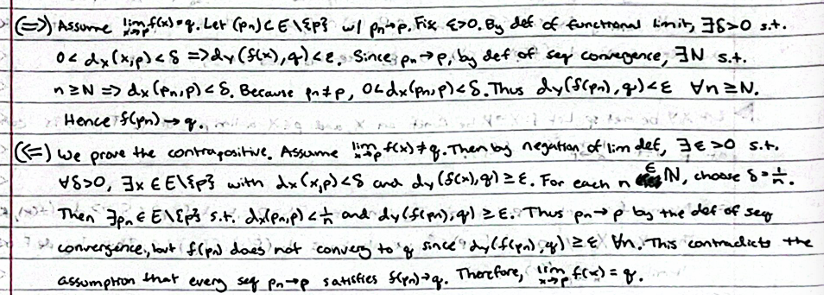 (⇒) Assume lim_{x→p} f(x) = q. Let (pn) ⊂ E\{p} w/ pn→p. Fix ε>0. By def of functional limit, ∃δ>0 s.t.
0 < dx(x,p) < δ ⇒ dy(f(x),q) < ε. Since pn→p, by def of seq convegence, ∃N s.t.
n ≥ N ⇒ dx(pn,p) < δ. Because pn≠p, 0<dx(pn,p)<δ. Thus dy(f(pn),q)<ε ∀n≥N.
Hence f(pn) → q.
(⇐) We prove the contrapositive. Assume lim_{x→p} f(x) ≠ q. Then by negation of lim def, ∃ε>0 s.t.
∀δ>0, ∃x∈E\{p} with dx(x,p)<δ and dy(f(x),q) ≥ ε. For each n ∈ ℕ, choose δ = 1/n.
Then ∃pn ∈ E\{p} s.t. dx(pn,p) < 1/n and dy(f(pn),q) ≥ ε. Thus pn→p by the def of seq
convergence, but f(pn) does not converg to q since dy(f(pn),q) ≥ ε ∀n. This contradicts the
assumption that every seq pn→p satisfies f(pn)→q. Therefore, lim_{x→p} f(x) = q.